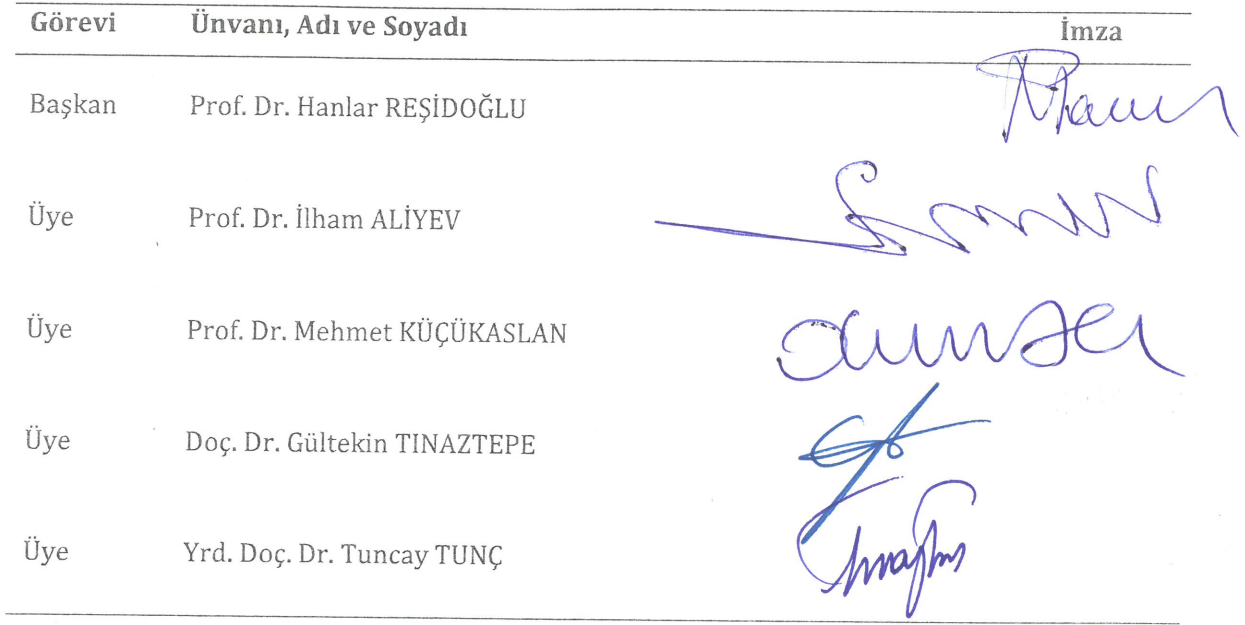 Görevi Ünvanı, Adı ve Soyadı İmza
Başkan Prof. Dr. Hanlar REŞİDOĞLU
Üye Prof. Dr. İlham ALİYEV
Üye Prof. Dr. Mehmet KÜÇÜKASLAN
Üye Doç. Dr. Gültekin TINAZTEPE
Üye Yrd. Doç. Dr. Tuncay TUNÇ